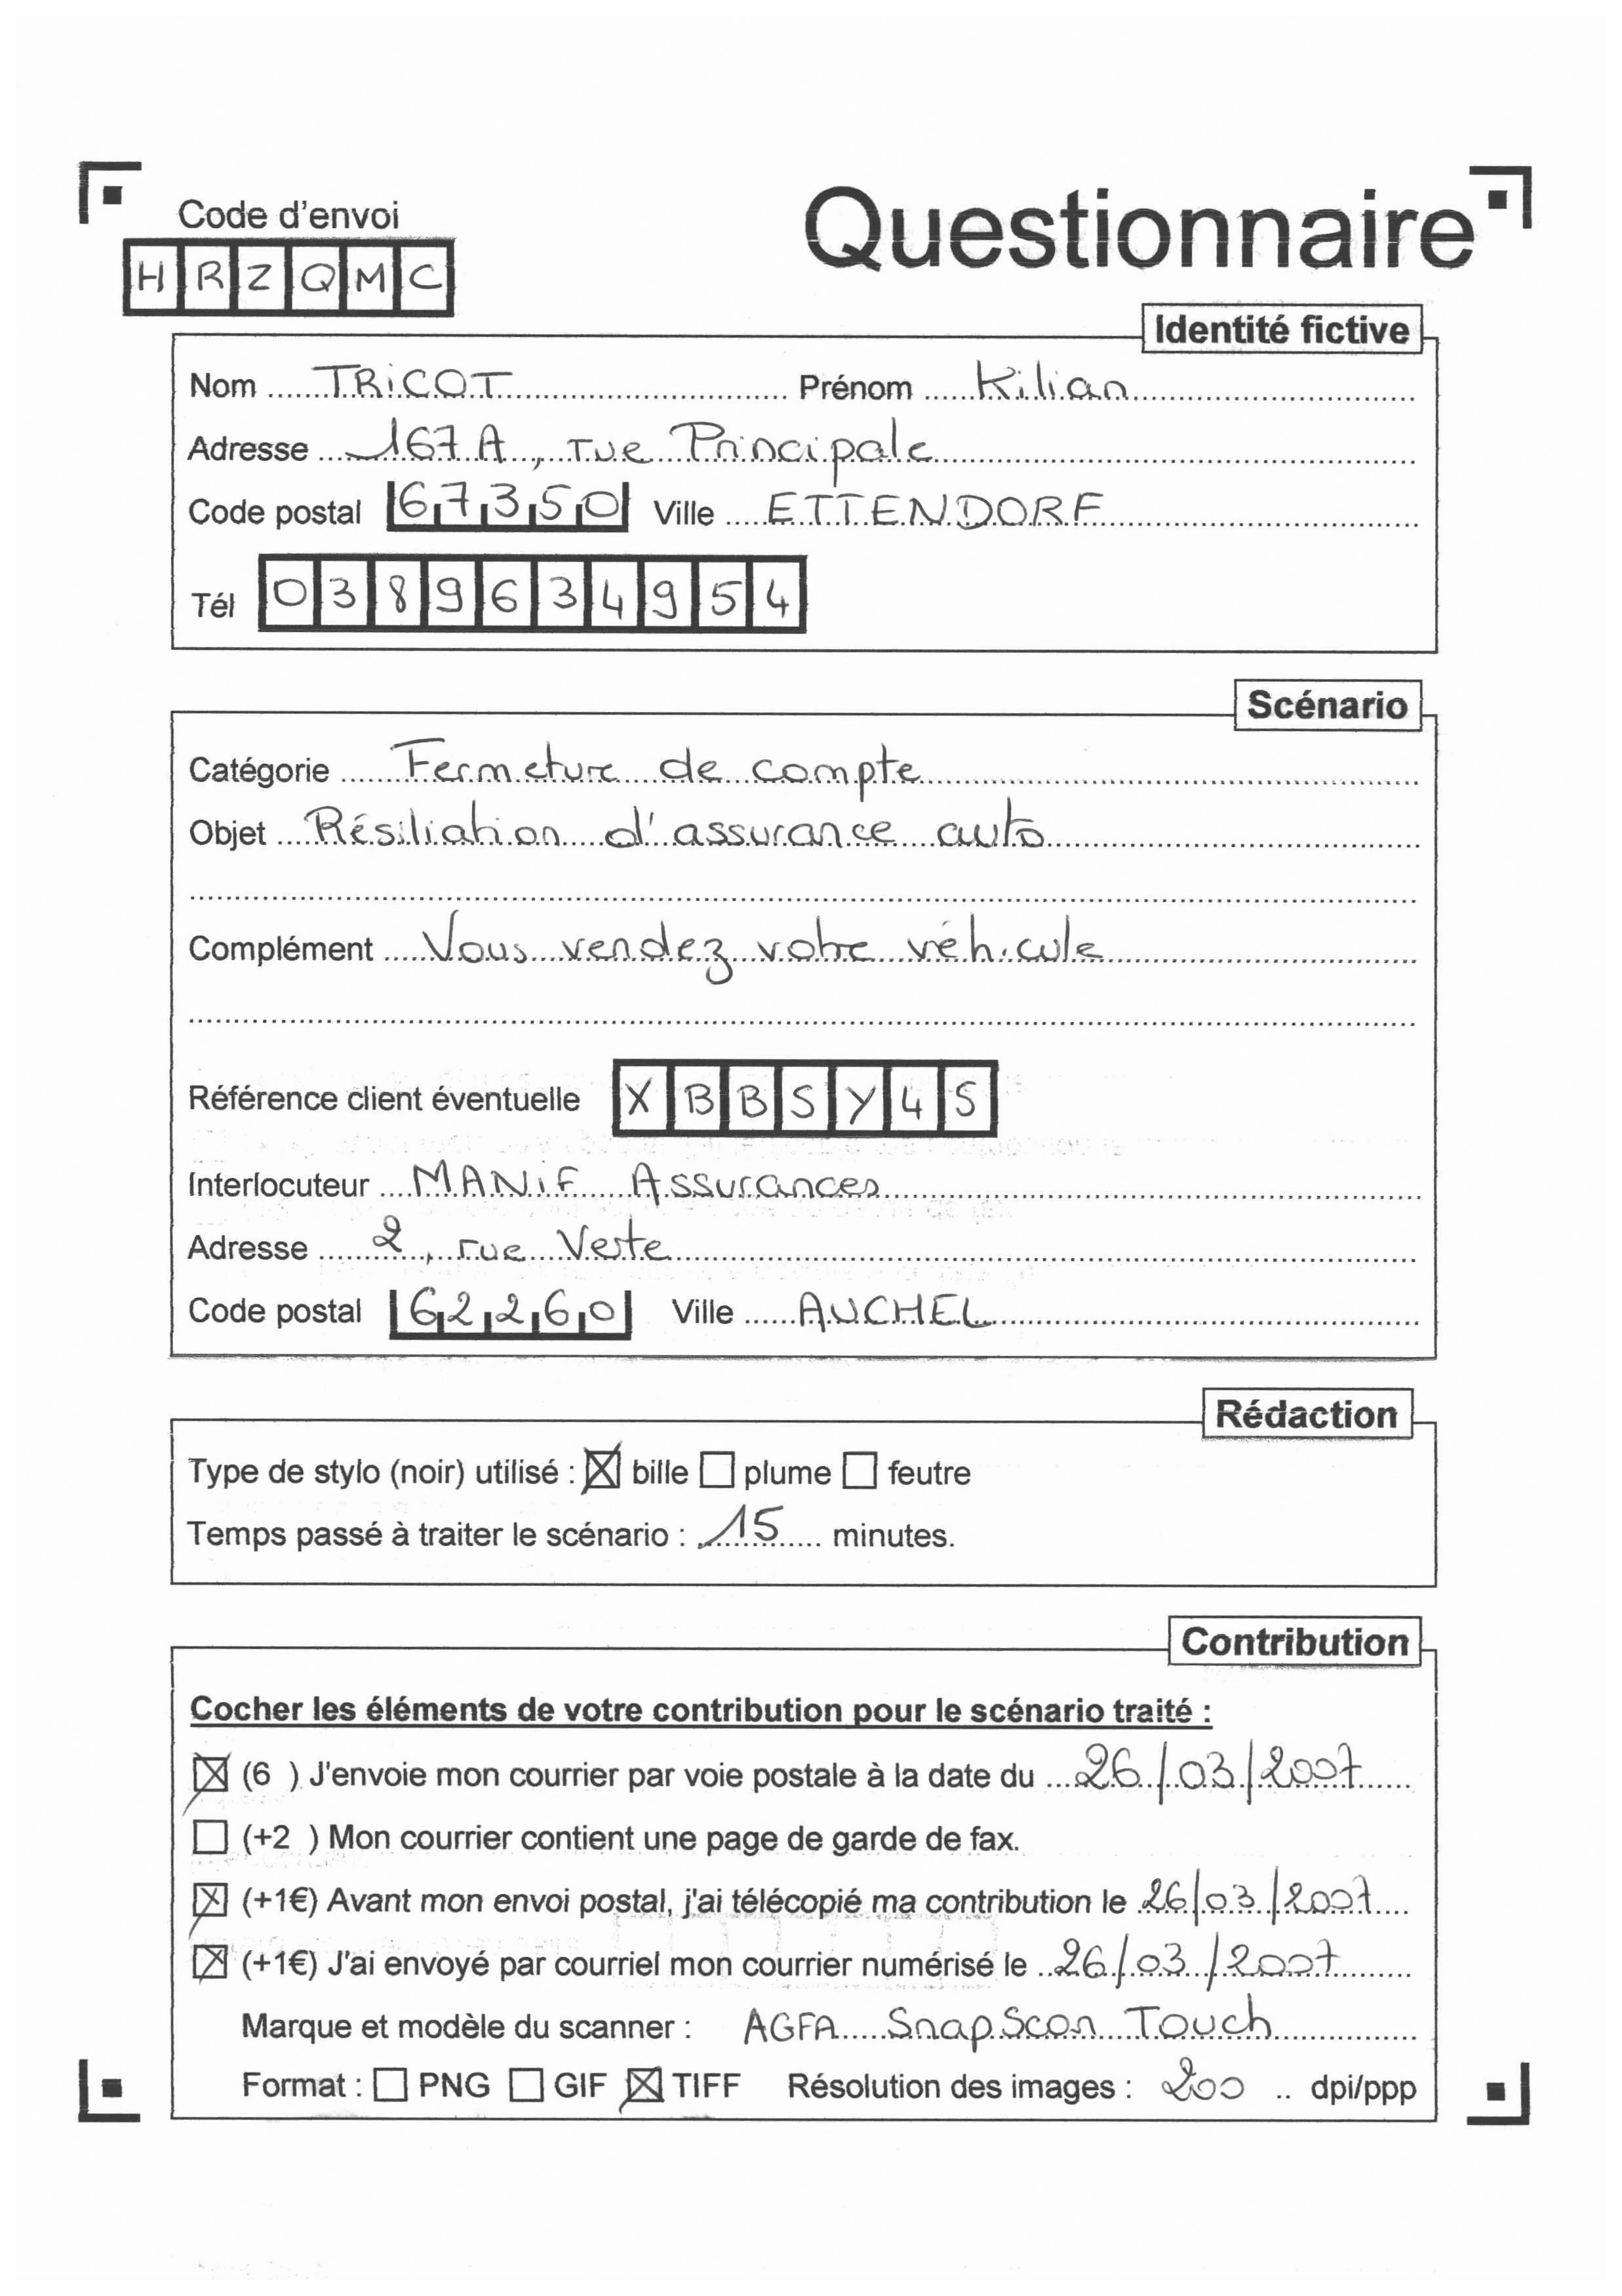 Code d'envoi
Questionnaire
HRZQMC
Identité fictive
Nom TRICOT Prénom Kilian
Adresse 167 A, rue Principale
Code postal 67350 Ville ETTENDORF
Tél 0389634954
Scénario
Catégorie Fermeture de compte
Objet Résiliation d'assurance auto
Complément Vous vendez votre véhicule
Référence client éventuelle XBBSY45
Interlocuteur MANIF Assurances
Adresse 2, rue Verte
Code postal 62260 Ville AUCHEL
Rédaction
Type de stylo (noir) utilisé : ☒ bille ☐ plume ☐ feutre
Temps passé à traiter le scénario : 15 minutes.
Contribution
Cocher les éléments de votre contribution pour le scénario traité :
☒ (6 ) J'envoie mon courrier par voie postale à la date du 26/03/2007
☐ (+2 ) Mon courrier contient une page de garde de fax.
☒ (+1€) Avant mon envoi postal, j'ai télécopié ma contribution le 26/03/2007
☒ (+1€) J'ai envoyé par courriel mon courrier numérisé le 26/03/2007
Marque et modèle du scanner : AGFA SnapScan Touch
Format : ☐ PNG ☐ GIF ☒ TIFF Résolution des images : 200 .. dpi/ppp